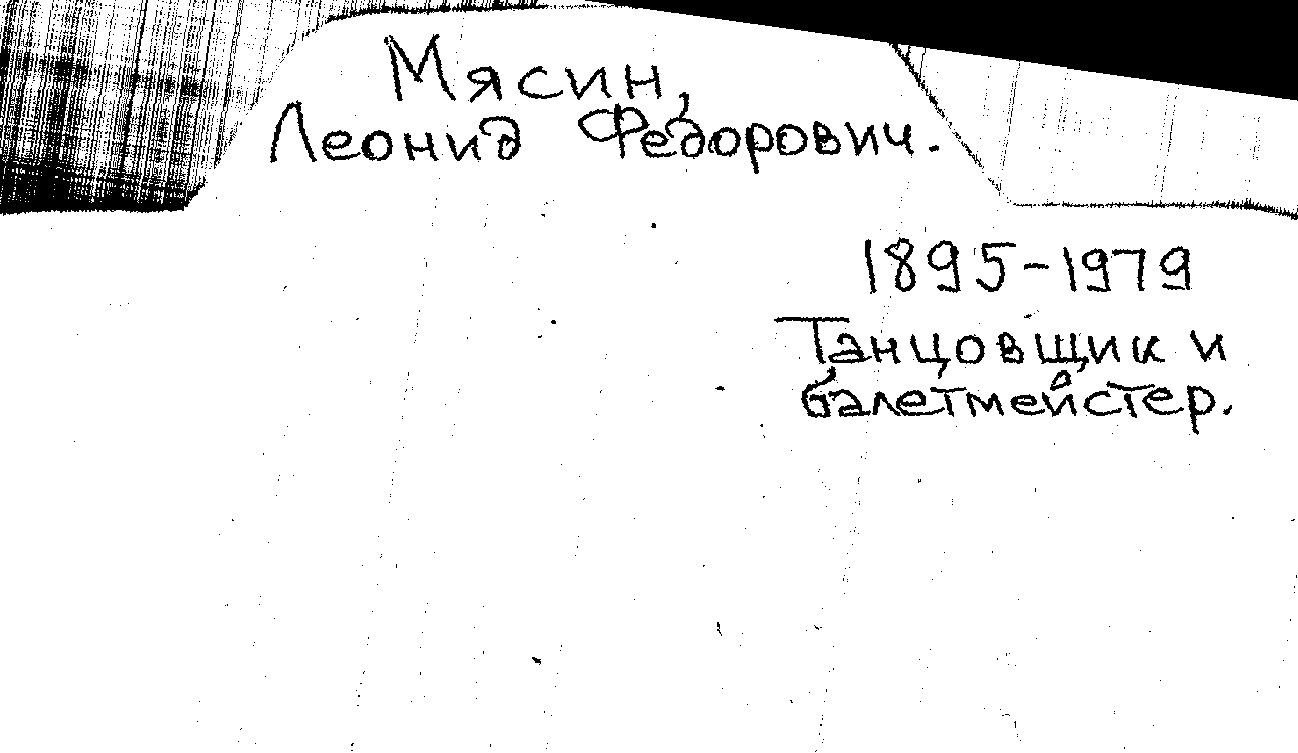 Мясин,
Леонид Федорович.
1895-1979
Танцовщик и
балетмейстер.